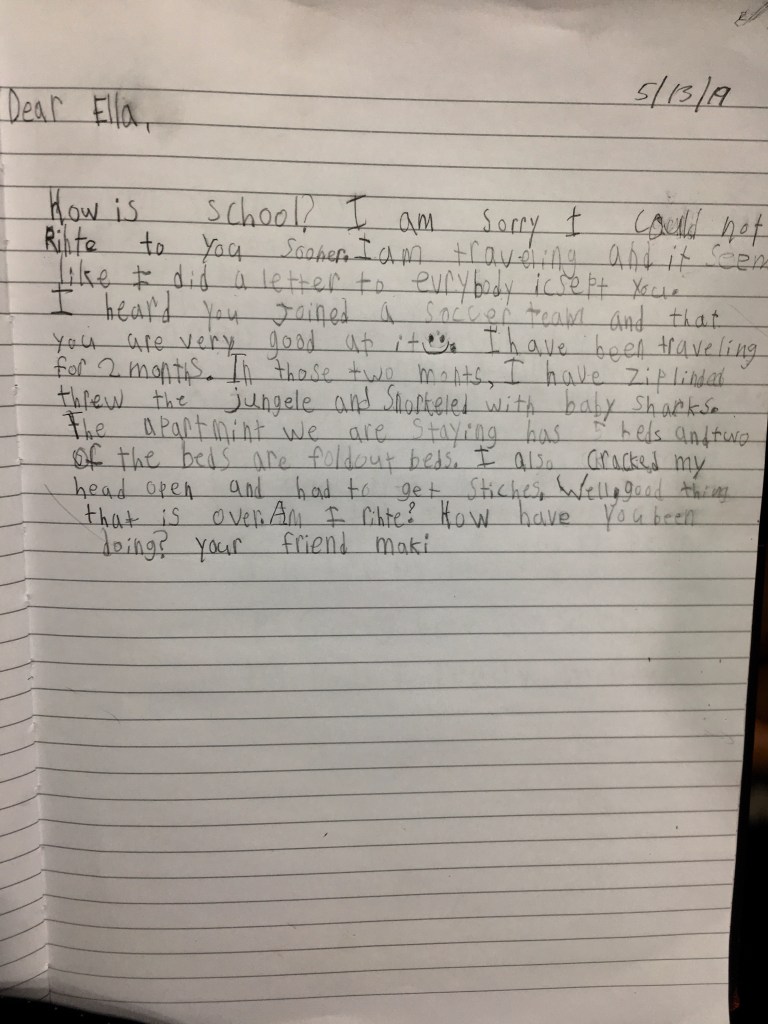 5/13/19
Dear Ella,
How is school? I am sorry I could not
Rihte to you sooner. I am traveling and it seem
like I did a letter to evrybody icsept you.
I heard you joined a soccer team and that
you are very good at it☺. I have been traveling
for 2 months. In those two monts, I have ziplindad
threw the jungele and Snorkeled with baby sharks.
The apartmint we are staying has 5 beds and two
of the beds are foldout beds. I also cracked my
head open and had to get stiches. Well, good thing
that is over. Am I rihte? How have you been
doing? your friend maki